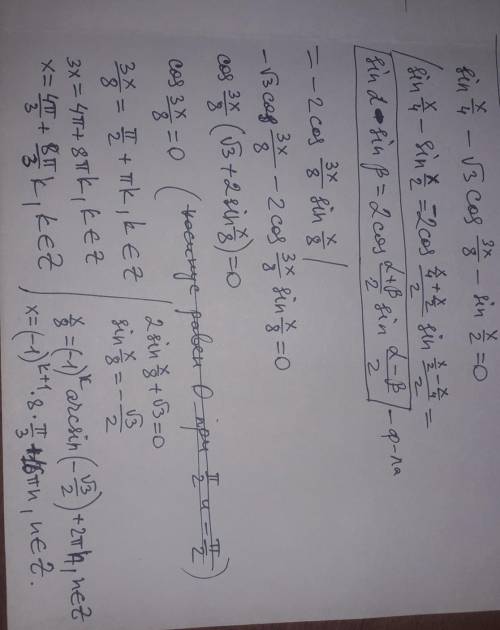 sin x/4 - √3 cos 3x/8 - sin x/2 = 0
/ sin x/4 - sin x/2 = -2cos (x/4 + x/2)/2 sin (x/2 - x/4)/2 =
sin α - sin β = 2cos (α+β)/2 sin (α-β)/2 - ф-ла
= -2cos 3x/8 sin x/8 /
-√3 cos 3x/8 - 2cos 3x/8 sin x/8 = 0
cos 3x/8 (√3 + 2sin x/8) = 0
cos 3x/8 = 0 (косинус равен 0 при π/2 и -π/2)
3x/8 = π/2 + πk, k∈Z
3x = 4π + 8πk, k∈Z
x = 4π/3 + 8π/3 k, k∈Z
2sin x/8 + √3 = 0
sin x/8 = -√3/2
x/8 = (-1)^k arcsin(-√3/2) + 2πn, n∈Z
x = (-1)^(k+1) · 8 · π/3 + πn, n∈Z.